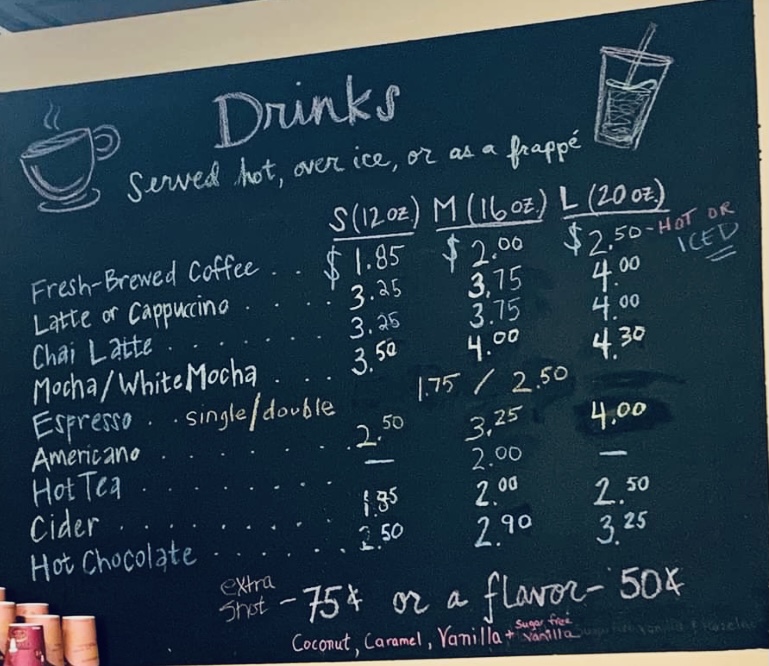 Drinks
Served hot, over ice, or as a frappé
S (12 oz.) M (16 oz.) L (20 oz.)
Fresh-Brewed Coffee . . . $ 1.85 $ 2.00 $ 2.50 - HOT OR ICED
Latte or Cappuccino . . . . . 3.25 3.75 4.00
Chai Latte . . . . . . . 3.25 3.75 4.00
Mocha/White Mocha . . . . 3.50 4.00 4.30
Espresso . . single/double 1.75 / 2.50
Americano . . . . . . . 2.50 3.25 4.00
Hot Tea . . . . . . . — 2.00 —
Cider . . . . . . . . 1.85 2.00 2.50
Hot Chocolate . . . . . . 2.50 2.90 3.25
extra shot - 75¢ or a flavor - 50¢
Coconut, Caramel, Vanilla + Sugar free Vanilla